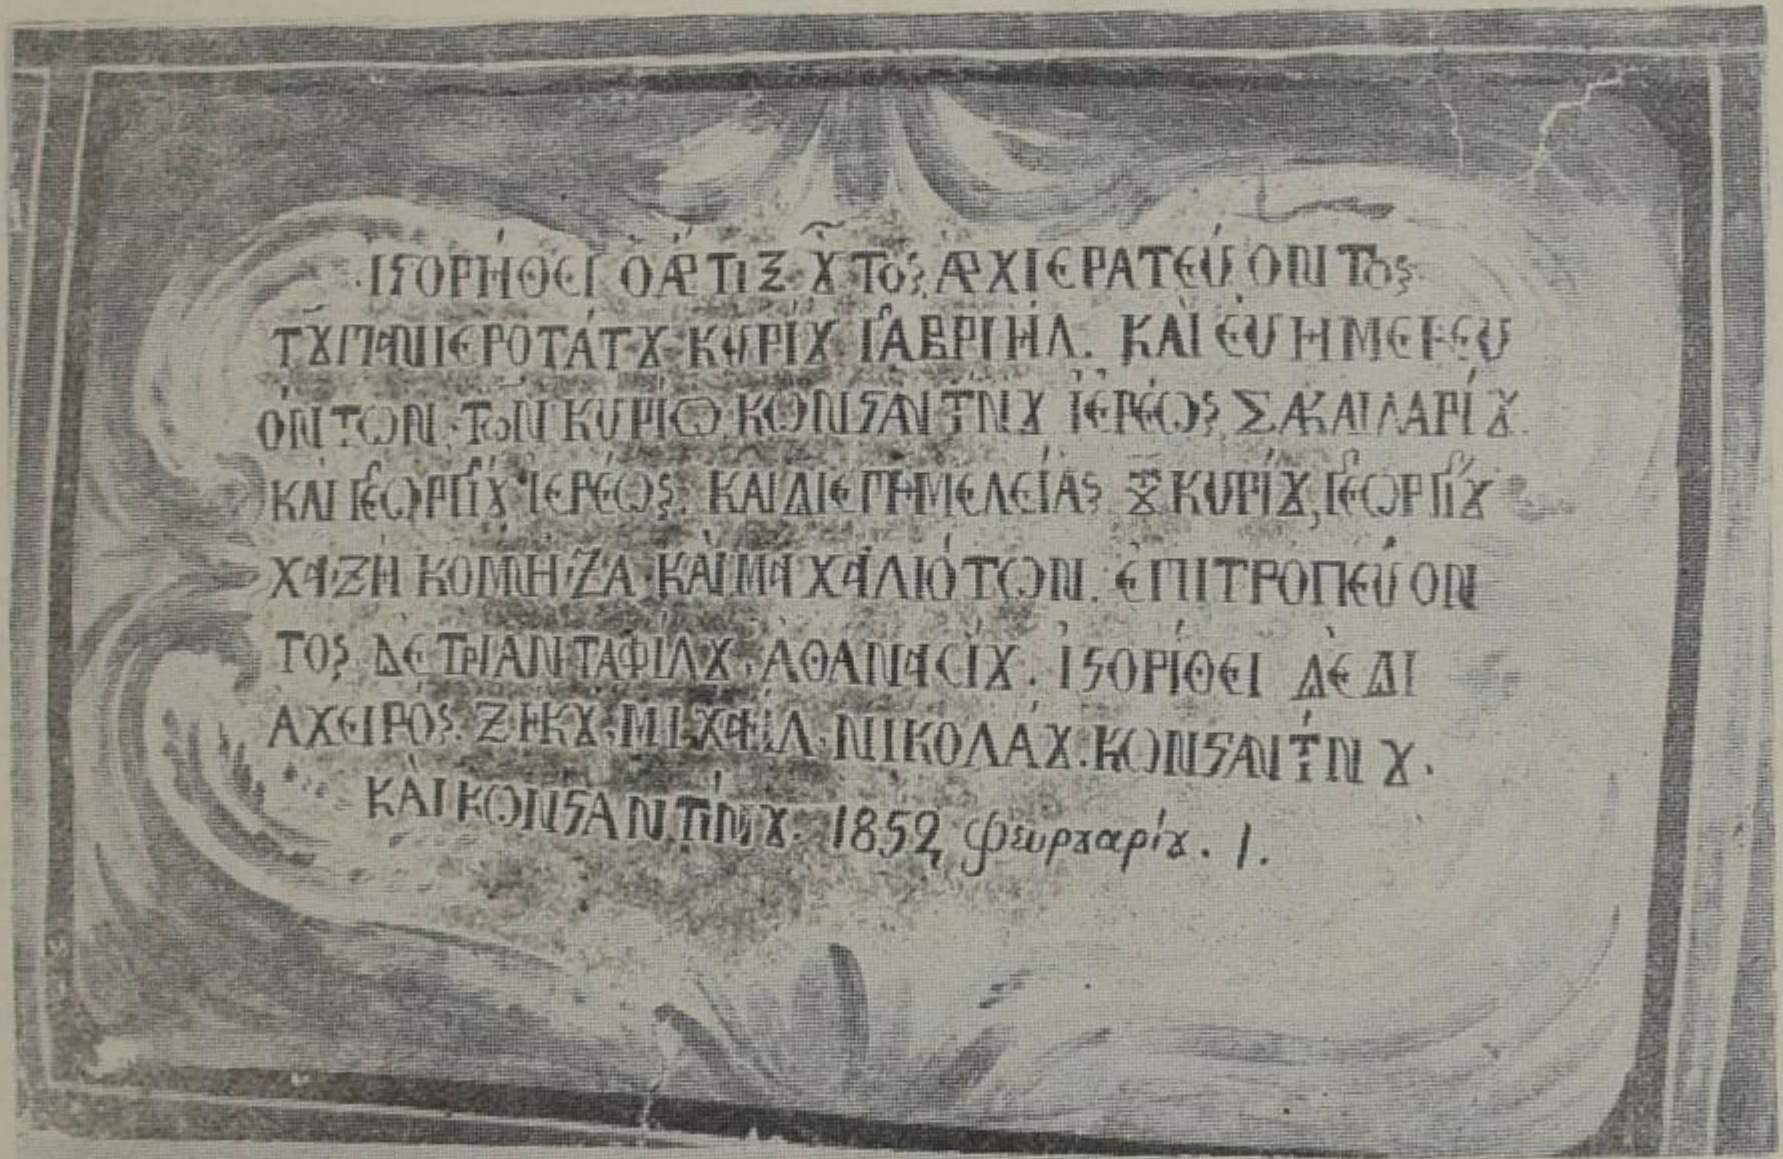 ΙϚΟΡΉΘΕΙ Ὁ ἌΡΤΙΞ Ȣ͂ΤΟΣ, ἈΡΧΙΕΡΑΤΕΎΟΝΤΟΣ
ΤȢ͂ ΠΑΝΙΕΡΟΤΆΤȢ ΚΥΡΊȢ ΓΑΒΡΙΉΛ. ΚΑῚ ἘΥΗΜΕΡΕΥ
ΌΝΤΩΝ, ΤΩ͂Ν ΚΥΡΊΩ ΚΩΝϚΑΝΤΊΝȢ ἹΕΡΈΩΣ ΣΑΚΑΙΛΑΡΊȢ.
ΚΑῚ ΓΕΩΡΓΊȢ ἹΕΡΈΩΣ. ΚΑῚ ΔΙΕΠΗΜΕΛΕΊΑΣ ΤȢ͂ ΚΥΡΊȢ, ΓΕΩΡΓΊȢ
ΧΑ·ΖΗ ΚΟΜΗ·ΖΑ ΚΑῚ ΜΑΧΑΛΙΌΤΩΝ. ἘΠΙΤΡΟΠΕΎΟΝ
ΤΟΣ ΔῈ ΤΡΙΑΝΤΑΦΊΛȢ· ἈΘΑΝΑΣΊȢ. ἹϚΟΡΊΘΕΙ ΔῈ ΔΙ
ΑΧΕΙΡΌΣ. ΖΗΚȢ· ΜΙΧΑΊΛ· ΝΙΚΟΛΆȢ. ΚΩΝϚΑΝΤΊΝȢ.
ΚΑῚ ΚΩΝϚΑΝΤΊΝȢ. 1852, φευρȣαρίȣ. 1.